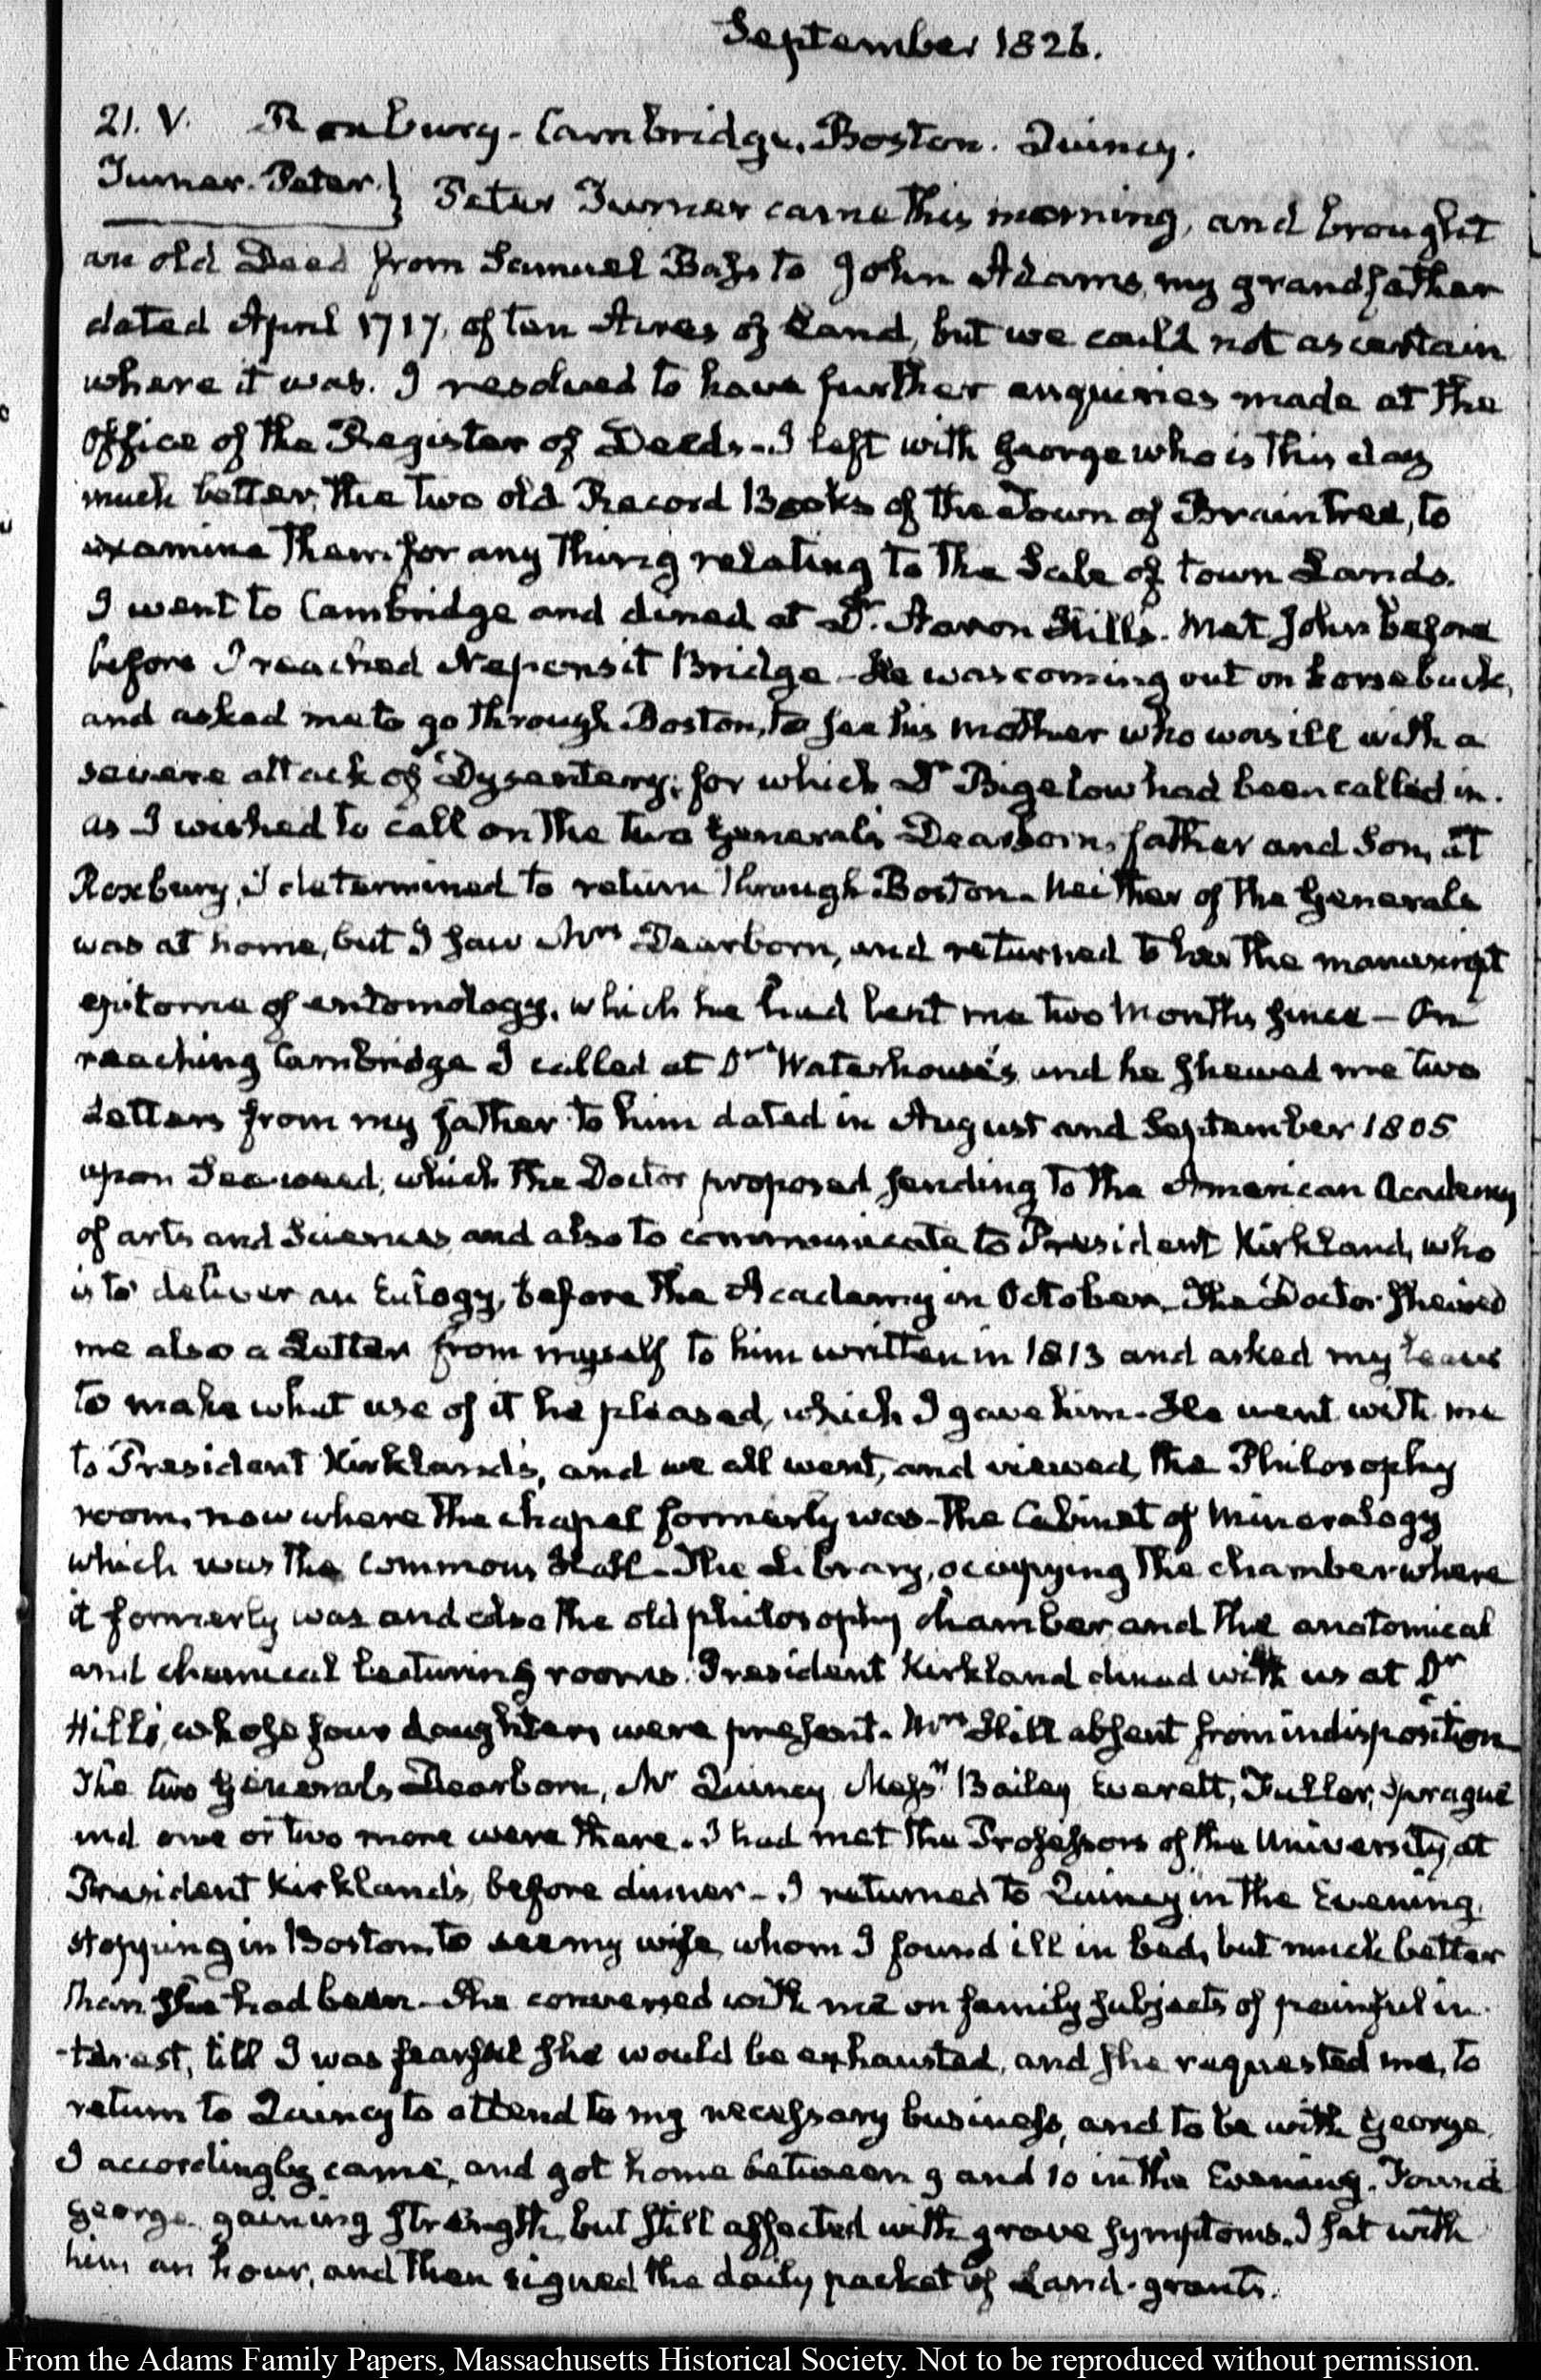 September 1826.
21. V. Roxbury. Cambridge. Boston. Quincy.
Turner. Peter. } Peter Turner came this morning, and brought
an old Deed from Samuel Bass to John Adams, my grandfather
dated April 1717, of ten Acres of Land, but we could not ascertain
where it was. I resolved to have further enquiries made at the
Office of the Register of Deeds. I left with George who is this day
much better, the two old Record Books of the Town of Braintree, to
examine them for any thing relating to the Sale of town Lands.
I went to Cambridge and dined at Dr. Aaron Hill's. Met John before
before I reached Neponsit Bridge. He was coming out on horseback,
and asked me to go through Boston, to see his mother who was ill with a
severe attack of Dysentery; for which Dr Bigelow had been called in.
as I wished to call on the two Generals Dearborn, father and Son, at
Roxbury, I determined to return through Boston. Neither of the Generals
was at home, but I saw Mrs Dearborn, and returned to her the manuscript
epitome of entomology, which he had lent me two Months since — On
reaching Cambridge I called at Dr Waterhouse's and he shewed me two
Letters from my father to him dated in August and September 1805
upon Sea-weed, which the Doctor proposed sending to the American Academy
of arts and Sciences and also to communicate to President Kirkland, who
is to deliver an Eulogy, before the Academy in October. The Doctor shewed
me also a Letter from myself to him written in 1813 and asked my leave
to make what use of it he pleased, which I gave him. He went with me
to President Kirkland's, and we all went, and viewed, the Philosophy
room, now where the chapel formerly was. The Cabinet of Mineralogy
which was the Commons Hall. The Library, occupying the chamber where
it formerly was and also the old philosophy chamber and the anatomical
and chemical lecturing rooms. President Kirkland dined with us at Dr
Hill's, whose four daughters were present. Mrs Hill absent from indisposition
The two Generals Dearborn, Mr Quincy Messrs Bailey Everett, Fuller, Sprague
and one or two more were there. I had met the Professors of the University at
President Kirkland's before dinner. I returned to Quincy in the Evening,
stopping in Boston to see my wife, whom I found ill in bed, but much better
than she had been. She conversed with me on family subjects of painful in-
-terest, till I was fearful she would be exhausted, and she requested me, to
return to Quincy to attend to my necessary business, and to be with George.
I accordingly came, and got home between 9 and 10 in the Evening. Found
George gaining strength, but still affected with grave symptoms. I sat with
him an hour, and then signed the daily packet of Land-grants.
From the Adams Family Papers, Massachusetts Historical Society. Not to be reproduced without permission.